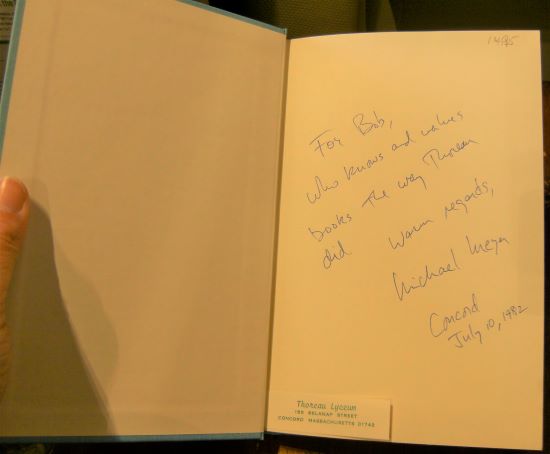 For Bob,
who knows and values
books the way Thoreau
did
Warm regards,
Michael Meyer
Concord
July 10, 1982
Thoreau Lyceum
156 BELKNAP STREET
CONCORD MASSACHUSETTS 01742